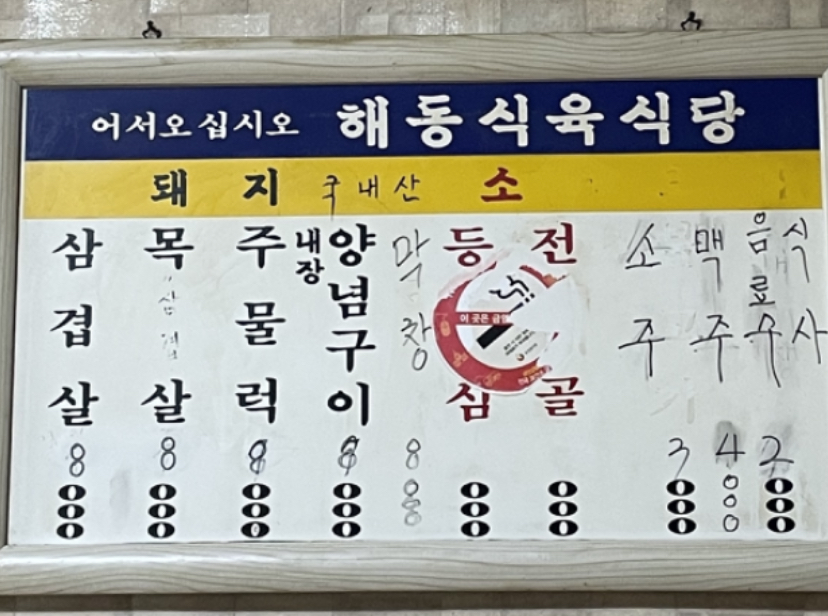 어서오십시오 해동식육식당
돼지 국내산 소
삼겹살 8000
목살 8000
주물럭 8000
내장 양념구이 8000
막창 8000
등심 000
전골 000
이곳은 금연
소주 3000
맥주 4000
음료수 2000
식사